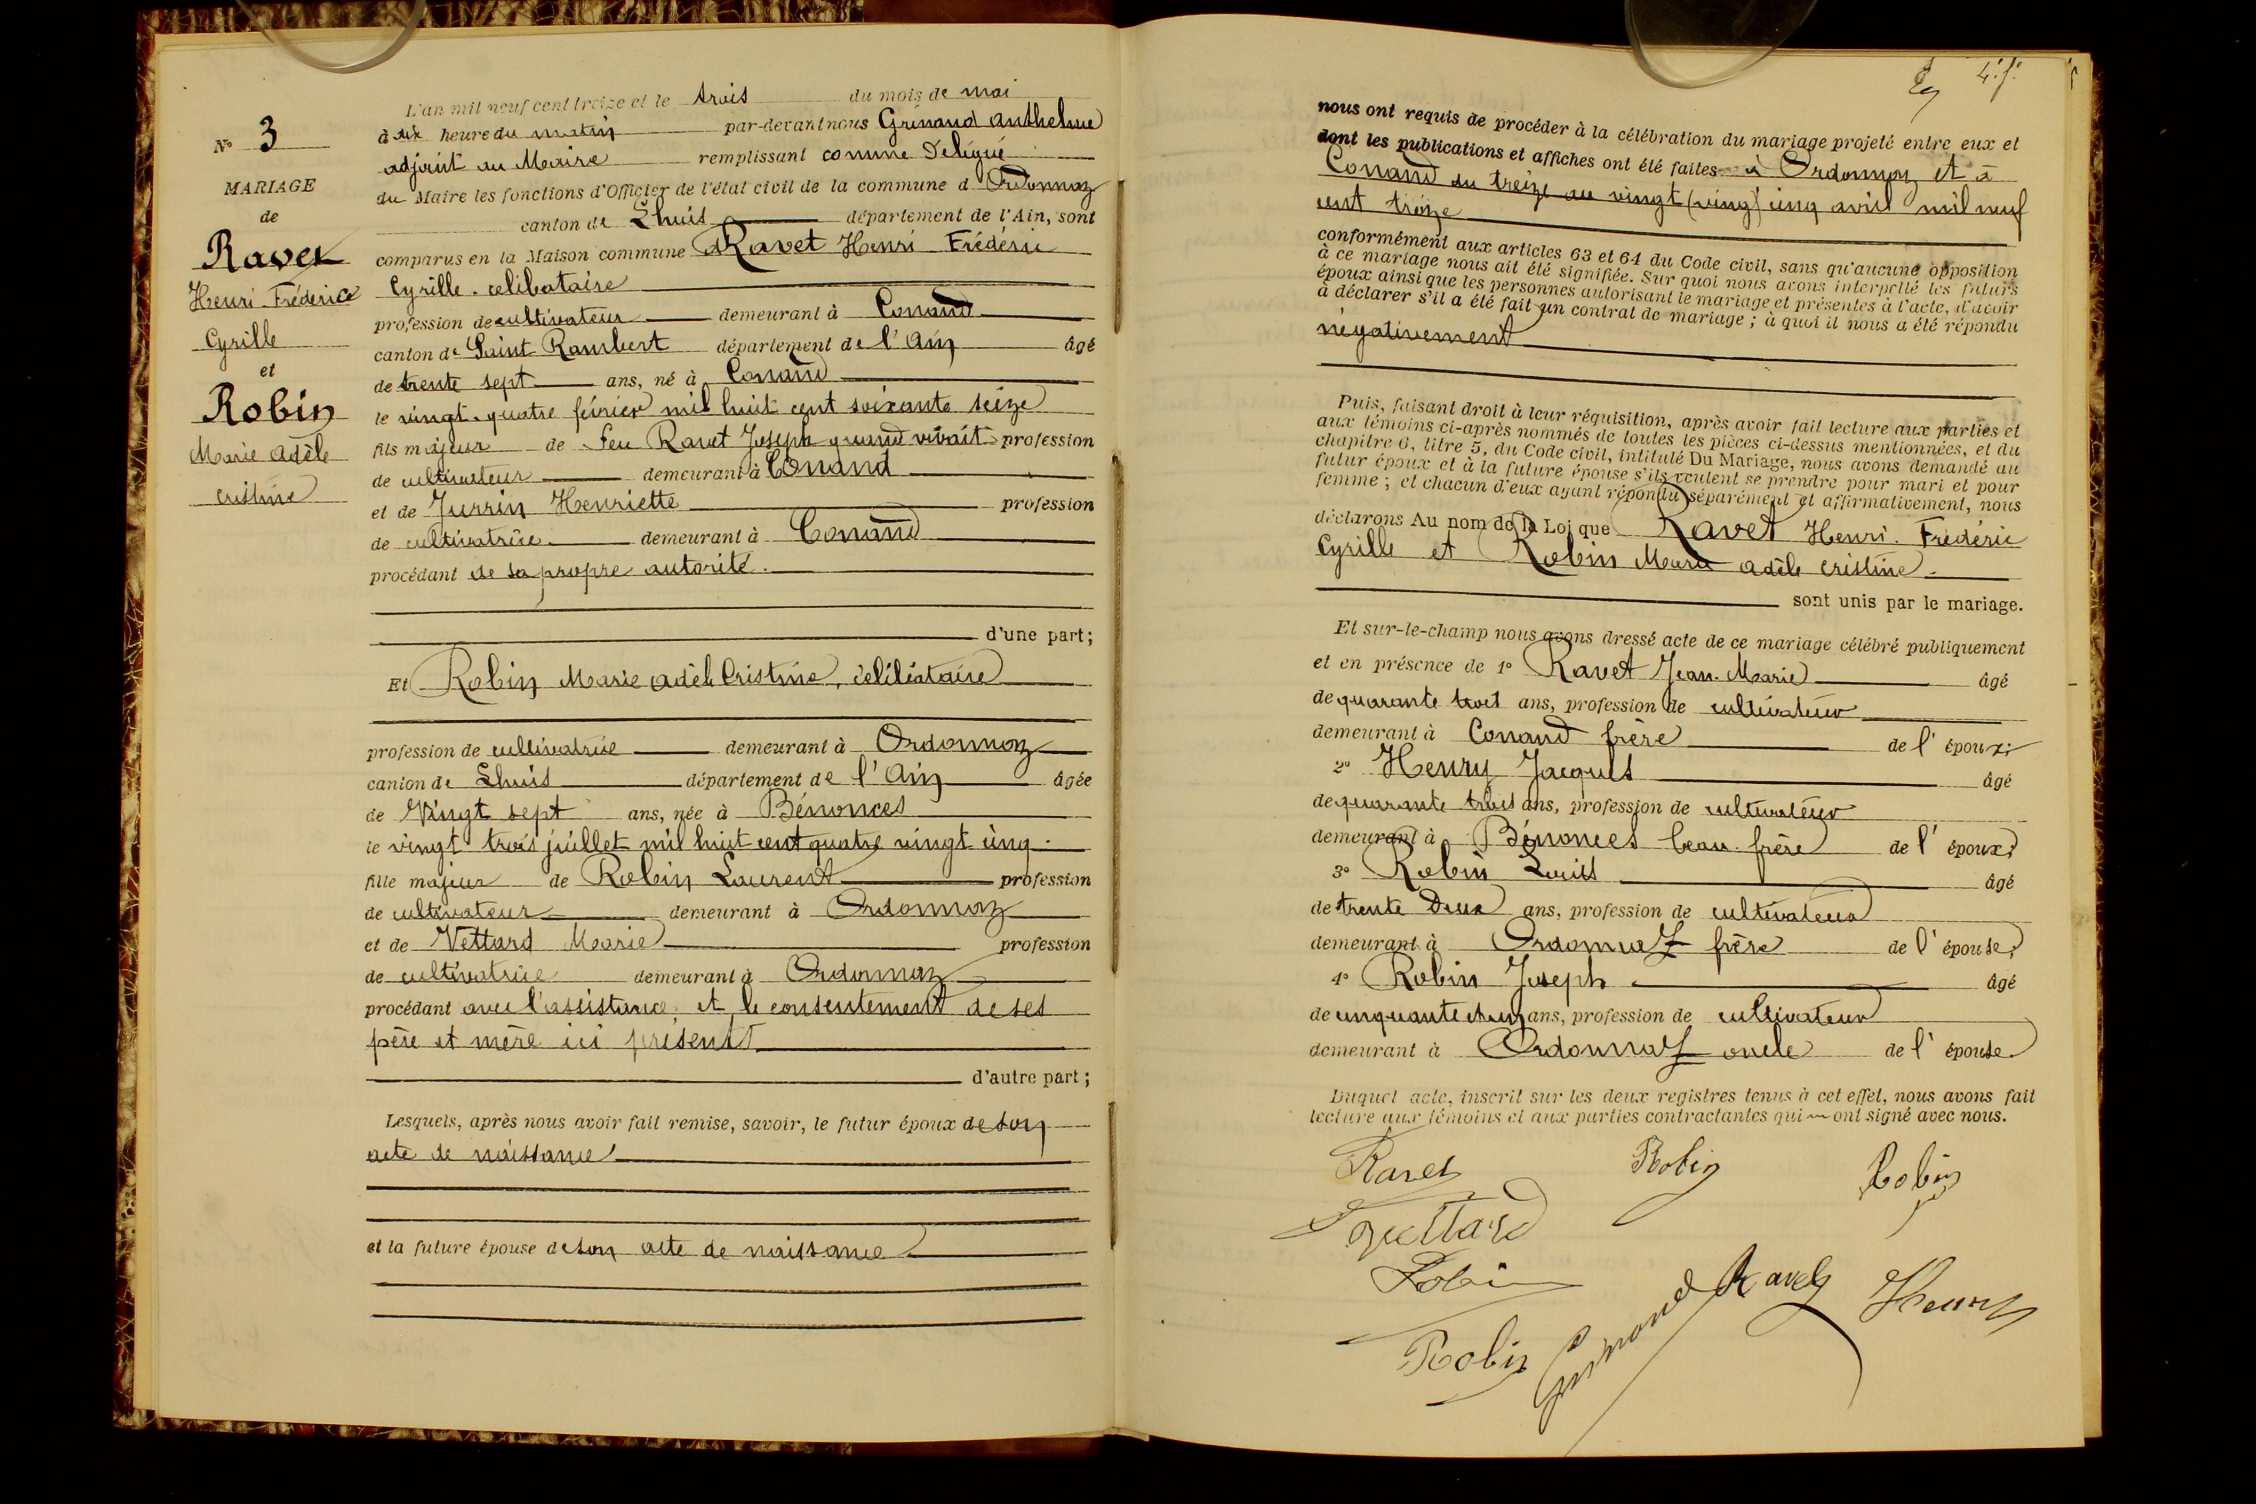 L'an mil neuf cent treize et le trois du mois de mai
à dix heure du matin par-devant nous Grinand Anthelme
adjoint au Maire remplissant comme Délégué
du Maire les fonctions d'Officier de l'état civil de la commune d'Ordonnaz
canton de Lhuis département de l'Ain, sont
comparus en la Maison commune Ravet Henri Frédéric
Cyrille. celibataire
profession de cultivateur demeurant à Conand
canton de Saint Rambert département de l'Ain âgé
de trente sept ans, né à Conand
le vingt-quatre février mil huit cent soixante seize
fils majeur de feu Ravet Joseph quand vivait profession
de cultivateur demeurant à Conand
et de Jurrin Henriette profession
de cultivatrice demeurant à Conand
procédant de sa propre autorité.
d'une part;
Et Robin Marie Adèle Cristine, célibataire
profession de cultivatrice demeurant à Ordonnaz
canton de Lhuis département de l'Ain âgée
de vingt sept ans, née à Bénonces
le vingt trois juillet mil huit cent quatre vingt cinq.
fille majeur de Robin Laurent profession
de cultivateur demeurant à Ordonnaz
et de Vettard Marie profession
de cultivatrice demeurant à Ordonnaz
procédant avec l'assistance, et le consentement de ses
père et mère ici présents
d'autre part;
Lesquels, après nous avoir fait remise, savoir, le futur époux de son
acte de naissance
et la future épouse de son acte de naissance
No 3
MARIAGE
de
Ravet
Henri-Frédéric
Cyrille
et
Robin
Marie Adèle
cristine
nous ont requis de procéder à la célébration du mariage projeté entre eux et
dont les publications et affiches ont été faites à Ordonnaz et à
Conand du treize au vingt (vingt) cinq avril mil neuf
cent treize
conformément aux articles 63 et 64 du Code civil, sans qu'aucune opposition
à ce mariage nous ait été signifiée. Sur quoi nous avons interpellé les futurs
époux ainsi que les personnes autorisant le mariage et présentes à l'acte, d'avoir
à déclarer s'il a été fait un contrat de mariage; à quoi il nous a été répondu
négativement
Puis, faisant droit à leur réquisition, après avoir fait lecture aux parties et
aux témoins ci-après nommés de toutes les pièces ci-dessus mentionnées, et du
chapitre 6, titre 5, du Code civil, intitulé Du Mariage, nous avons demandé au
futur époux et à la future épouse s'ils veulent se prendre pour mari et pour
femme; et chacun d'eux ayant répondu séparément et affirmativement, nous
déclarons Au nom de la Loi que Ravet Henri. Frédéric
Cyrille et Robin Marie adèle cristine.
sont unis par le mariage.
Et sur-le-champ nous avons dressé acte de ce mariage célébré publiquement
et en présence de 1° Ravet Jean-Marie âgé
de quarante trois ans, profession de cultivateur
demeurant à Conand frère de l'époux;
2° Henry Jacques âgé
de quarante trois ans, profession de cultivateur
demeurant à Bénonces beau-frère de l'époux;
3° Robin Louis âgé
de trente deux ans, profession de cultivateur
demeurant à Ordonnaz frère de l'épouse;
4° Robin Joseph âgé
de cinquante et un ans, profession de cultivateur
demeurant à Ordonnaz oncle de l'épouse
Duquel acte, inscrit sur les deux registres tenus à cet effet, nous avons fait
lecture aux témoins et aux parties contractantes qui ont signé avec nous.
Ravet Robin Robin
Vettard
Robin
Ravet Henry
Robin Grinand